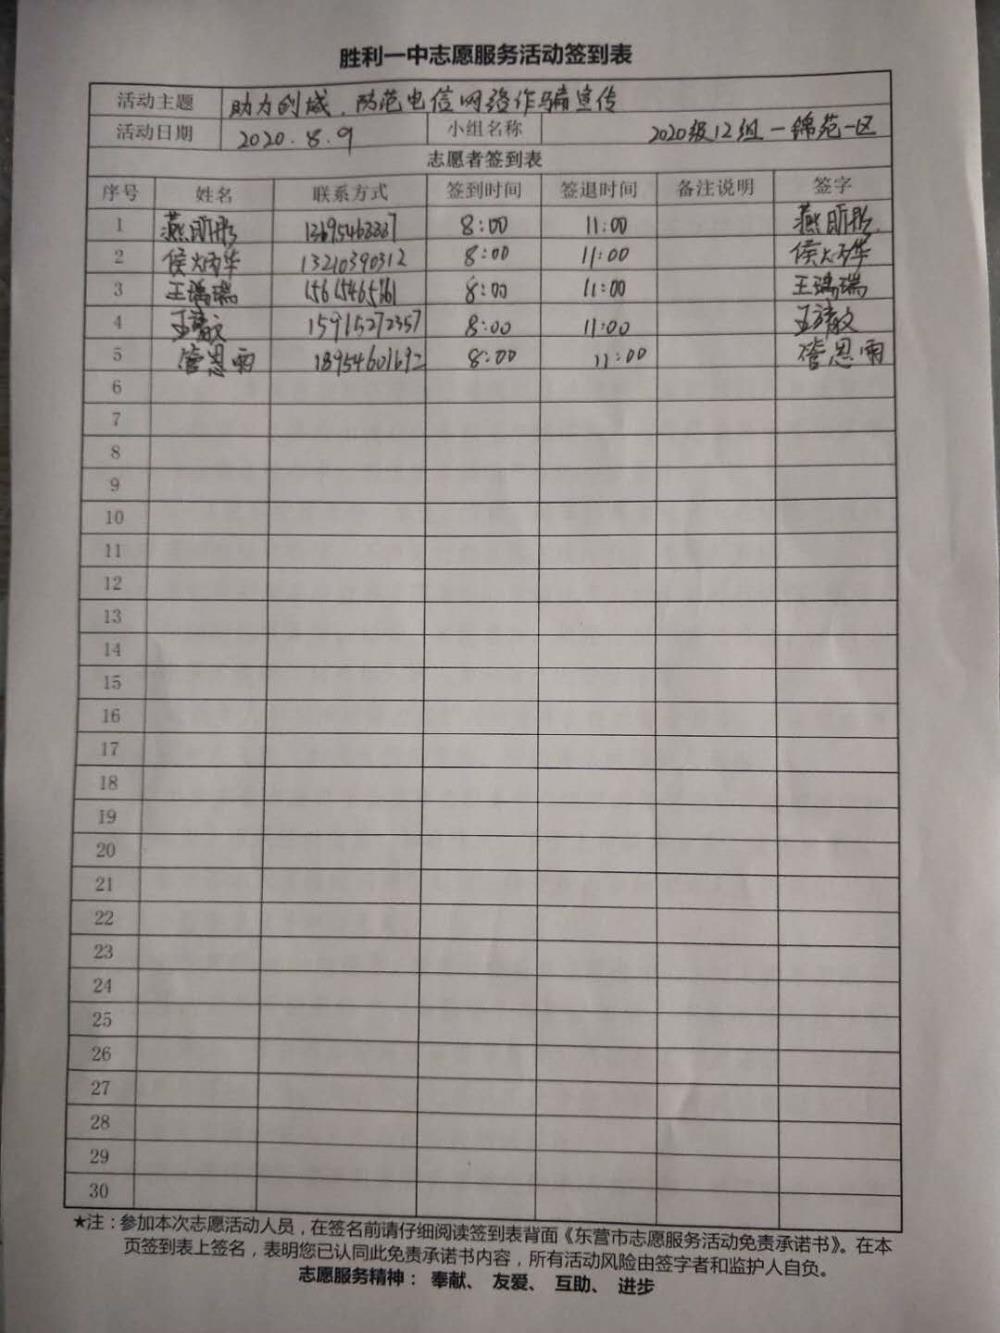 胜利一中志愿服务活动签到表
活动主题 助力创城、防范电信网络诈骗宣传
活动日期 2020.8.9 小组名称 2020级12组一锦苑一区
志愿者签到表
序号 姓名 联系方式 签到时间 签退时间 备注说明 签字
1 燕昕彤 8:00 11:00 燕昕彤
2 侯炳华 13210390312 8:00 11:00 侯炳华
3 王瑞 8:00 11:00 王瑞
4 王 15915272357 8:00 11:00 王
5 管恩雨 18954601692 8:00 11:00 管恩雨
6
7
8
9
10
11
12
13
14
15
16
17
18
19
20
21
22
23
24
25
26
27
28
29
30
★注：参加本次志愿活动人员，在签名前请仔细阅读签到表背面《东营市志愿服务活动免责承诺书》。在本
页签到表上签名，表明您已认同此免责承诺书内容，所有活动风险由签字者和监护人自负。
志愿服务精神： 奉献、 友爱、 互助、 进步